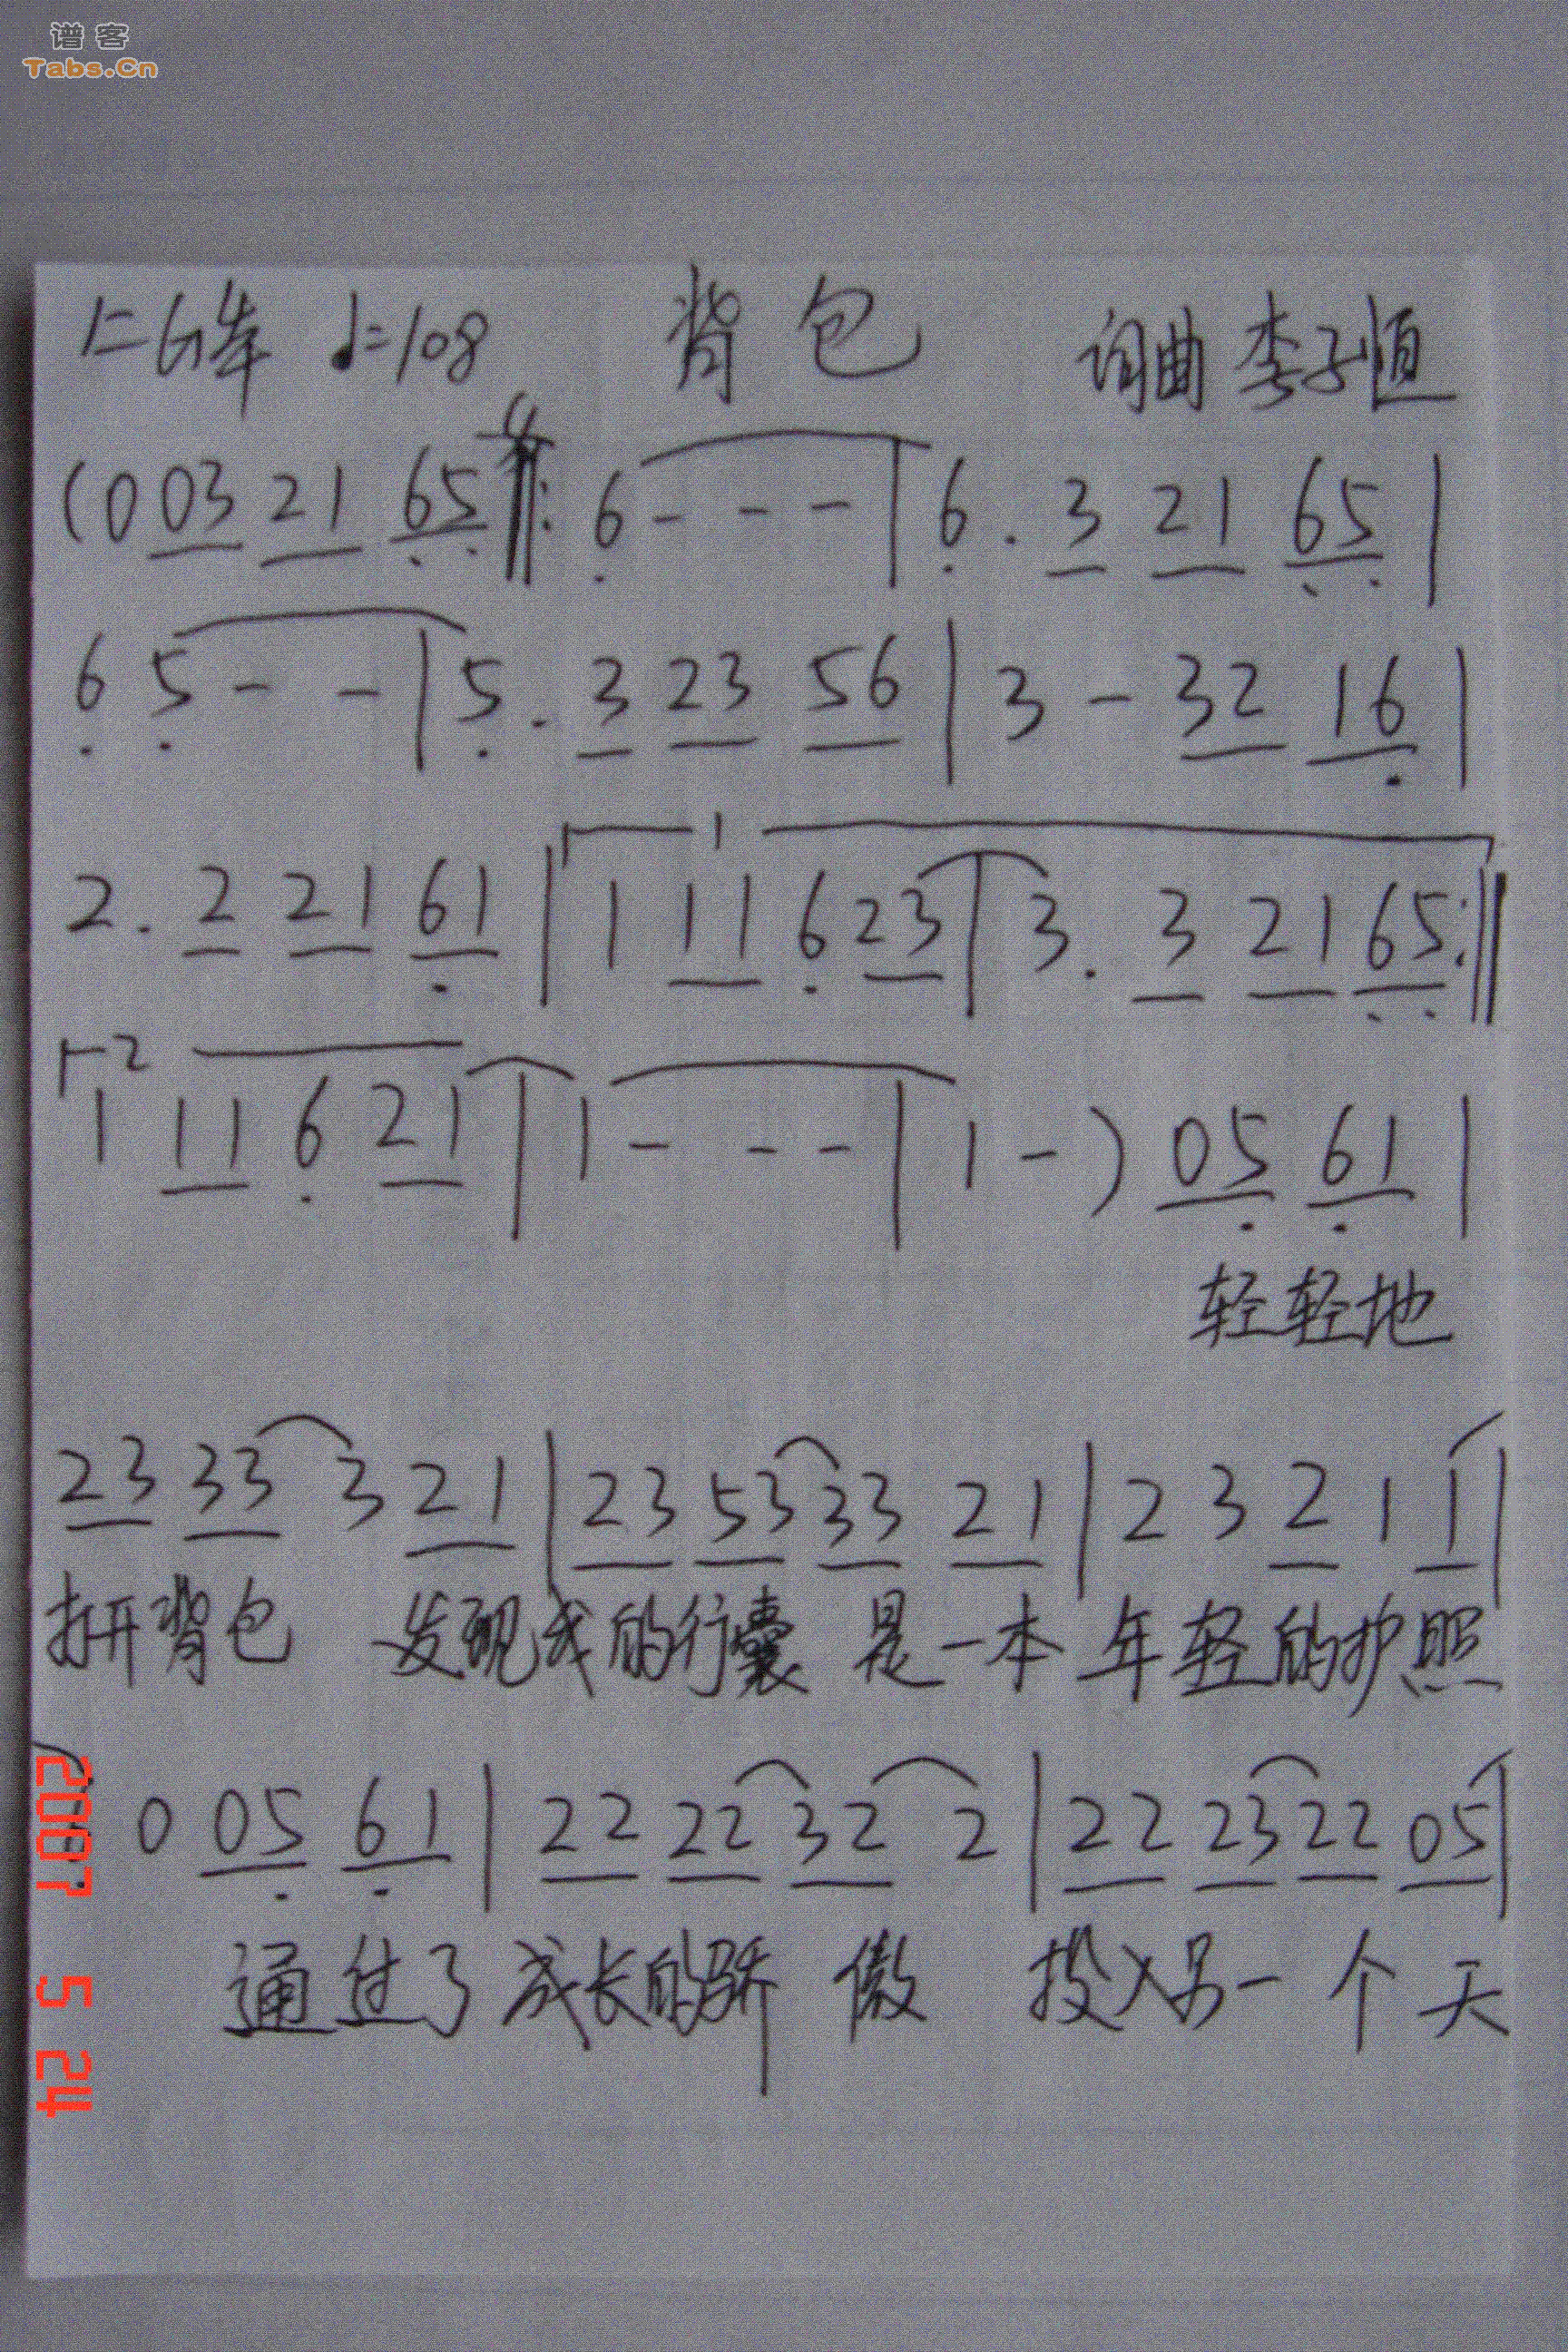 谱客
Tabs.Cn
1=G 4/4 ♩=108 背包 词曲 李子恒
(0 03 21 65 ‖: 6 - - - | 6 . 3 21 65 |
6 5 - - | 5 . 3 23 56 | 3 - 32 16 |
2 . 2 21 61 | 1 11 6 23 | 3 . 3 21 65 :‖
1 11 6 21 | 1 - - - | 1 - ) 05 61 |
轻轻地
23 33 3 21 | 23 53 33 21 | 2 3 2 1 1 |
打开背包 发现我的行囊 是一本 年轻的护照
0 05 61 | 22 22 32 2 | 22 23 22 05 |
通过了成长的骄傲 投入另一个天
2007 5 24